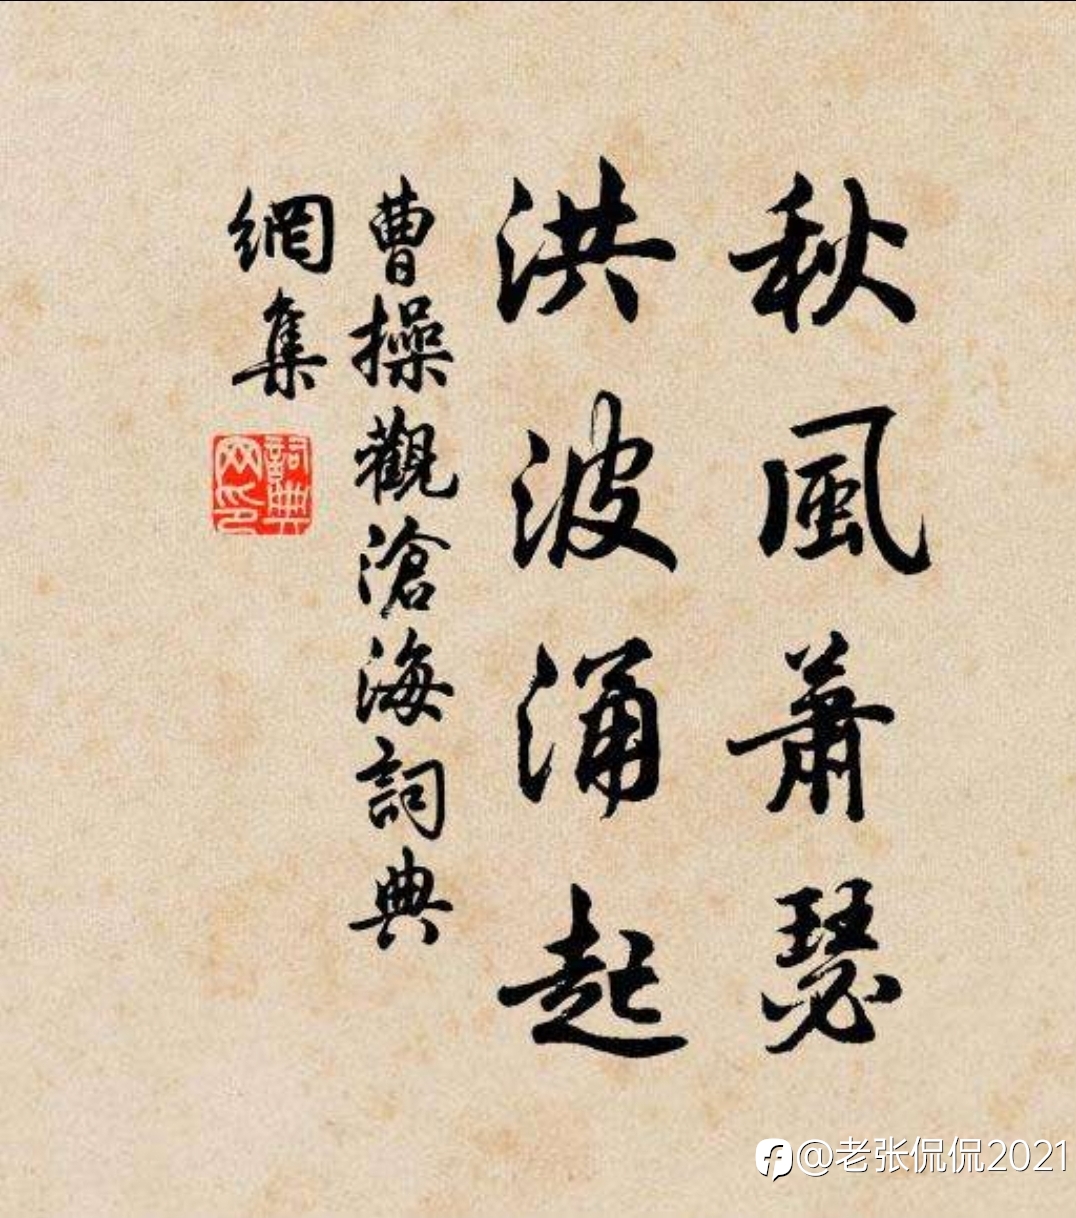 秋風蕭瑟
洪波涌起
曹操觀滄海詞典
網集
詞典
网印
@老张侃侃2021